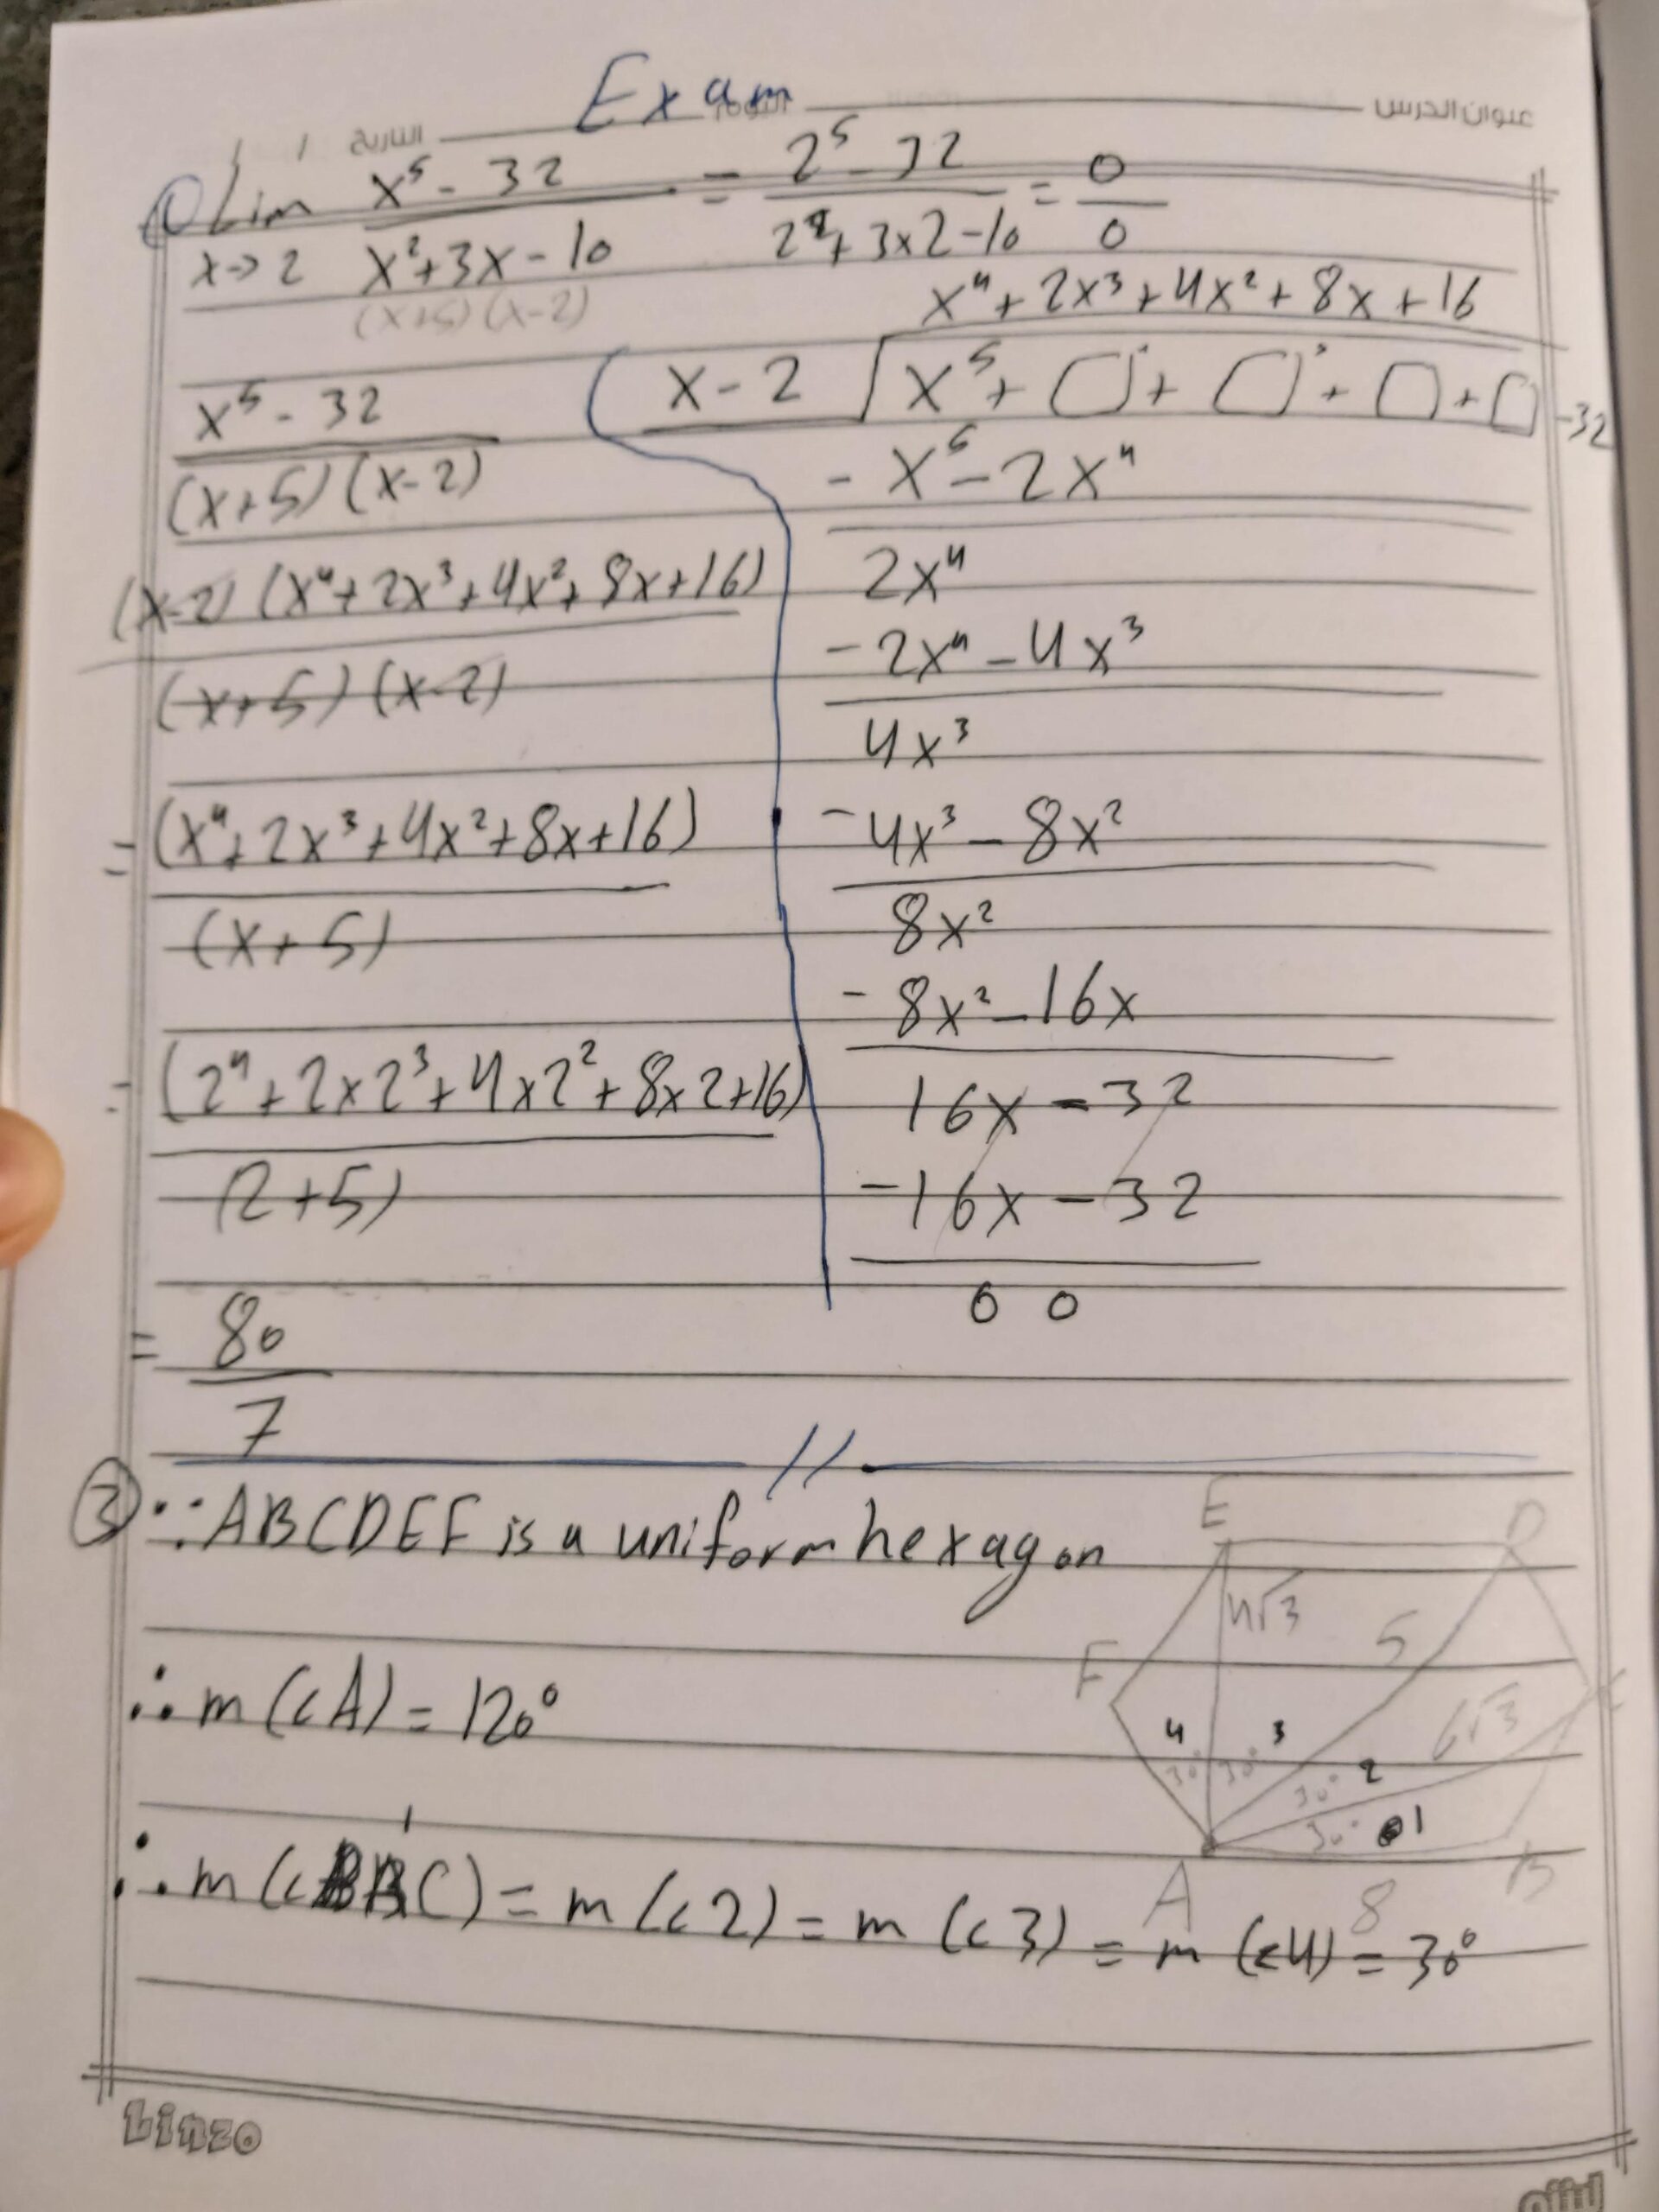 Exam
عنوان الدرس
التاريخ / /
① Lim x→2 (x⁵ - 32)/(x² + 3x - 10) = (2⁵ - 32)/(2² + 3x2 - 10) = 0/0
(x+5)(x-2)
x⁵ - 32
(x+5)(x-2)
(x-2)(x⁴ + 2x³ + 4x² + 8x + 16)
(x+5)(x-2)
= (x⁴ + 2x³ + 4x² + 8x + 16)
(x+5)
= (2⁴ + 2x2³ + 4x2² + 8x2 + 16)
(2+5)
= 80
7
x⁴ + 2x³ + 4x² + 8x + 16
x - 2 √ x⁵ + □ + □ + □ + □ - 32
- x⁵ - 2x⁴
2x⁴
- 2x⁴ - 4x³
4x³
- 4x³ - 8x²
8x²
- 8x² - 16x
16x - 32
- 16x - 32
0 0
③ ∵ ABCDEF is a uniform hexagon
∴ m(<A) = 120°
∴ m(<BAC) = m(<2) = m(<3) = m(<4) = 30°
E D
4√3
5
F
6√3
4 3 2 1
30° 30° 30° 30°
A 8 B
Linzo